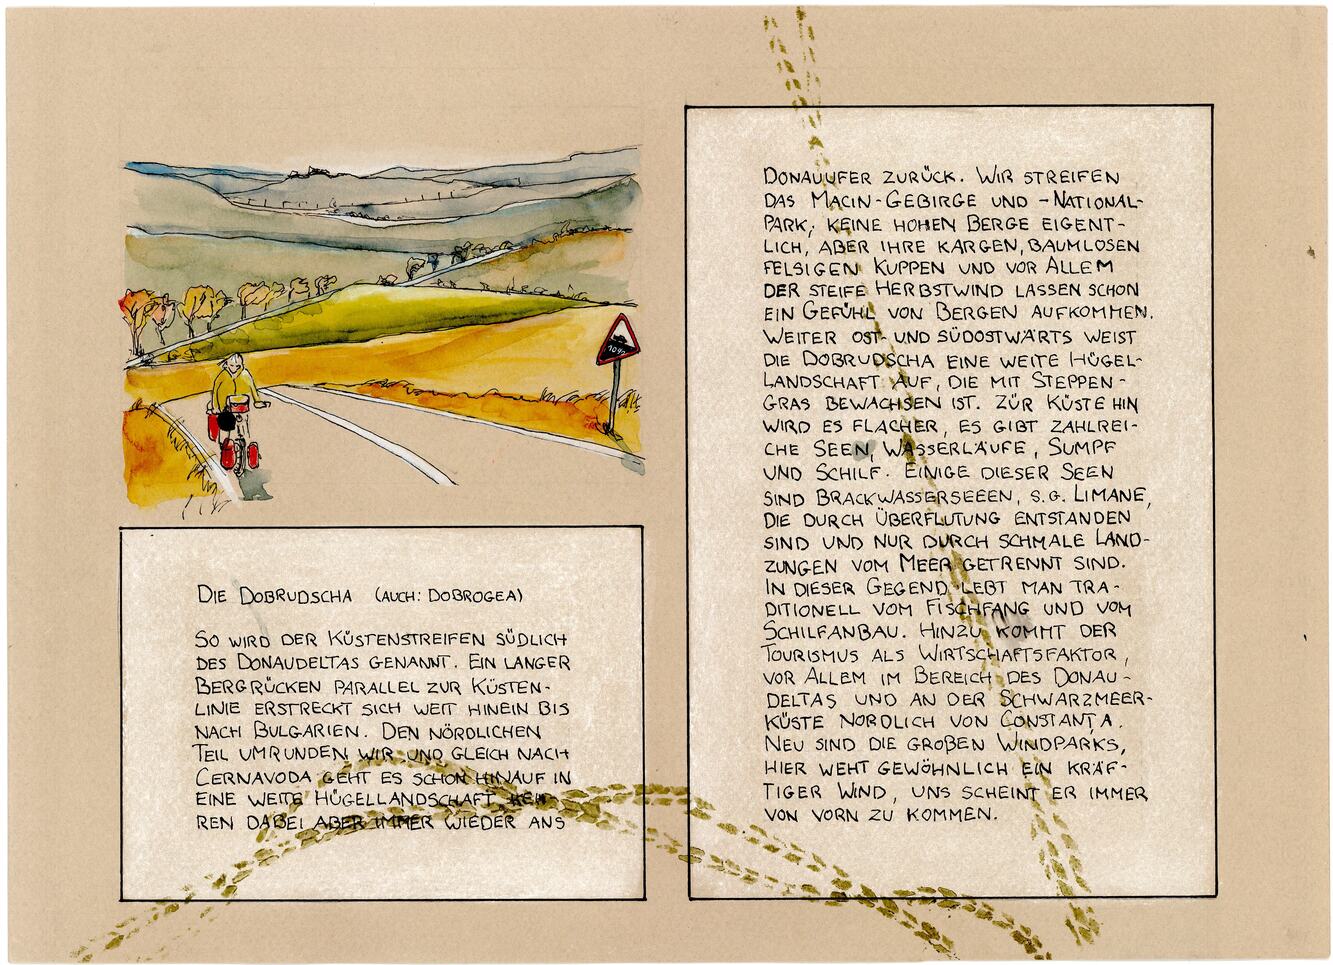 10%
DIE DOBRUDSCHA (AUCH: DOBROGEA)
SO WIRD DER KÜSTENSTREIFEN SÜDLICH
DES DONAUDELTAS GENANNT. EIN LANGER
BERGRÜCKEN PARALLEL ZUR KÜSTEN-
LINIE ERSTRECKT SICH WEIT HINEIN BIS
NACH BULGARIEN. DEN NÖRDLICHEN
TEIL UMRUNDEN WIR UND GLEICH NACH
CERNAVODA GEHT ES SCHON HINAUF IN
EINE WEITE HÜGELLANDSCHAFT, KEH-
REN DABEI ABER IMMER WIEDER ANS
DONAUUFER ZURÜCK. WIR STREIFEN
DAS MACIN-GEBIRGE UND -NATIONAL-
PARK, KEINE HOHEN BERGE EIGENT-
LICH, ABER IHRE KARGEN, BAUMLOSEN
FELSIGEN KUPPEN UND VOR ALLEM
DER STEIFE HERBSTWIND LASSEN SCHON
EIN GEFÜHL VON BERGEN AUFKOMMEN.
WEITER OST- UND SÜDOSTWÄRTS WEIST
DIE DOBRUDSCHA EINE WEITE HÜGEL-
LANDSCHAFT AUF, DIE MIT STEPPEN-
GRAS BEWACHSEN IST. ZUR KÜSTE HIN
WIRD ES FLACHER, ES GIBT ZAHLREI-
CHE SEEN, WASSERLÄUFE, SUMPF
UND SCHILF. EINIGE DIESER SEEN
SIND BRACKWASSERSEEEN, S.G. LIMANE,
DIE DURCH ÜBERFLUTUNG ENTSTANDEN
SIND UND NUR DURCH SCHMALE LAND-
ZUNGEN VOM MEER GETRENNT SIND.
IN DIESER GEGEND LEBT MAN TRA-
DITIONELL VOM FISCHFANG UND VOM
SCHILFANBAU. HINZU KOMMT DER
TOURISMUS ALS WIRTSCHAFTSFAKTOR,
VOR ALLEM IM BEREICH DES DONAU-
DELTAS UND AN DER SCHWARZMEER-
KÜSTE NÖRDLICH VON CONSTANȚA.
NEU SIND DIE GROßEN WINDPARKS,
HIER WEHT GEWÖHNLICH EIN KRÄF-
TIGER WIND, UNS SCHEINT ER IMMER
VON VORN ZU KOMMEN.